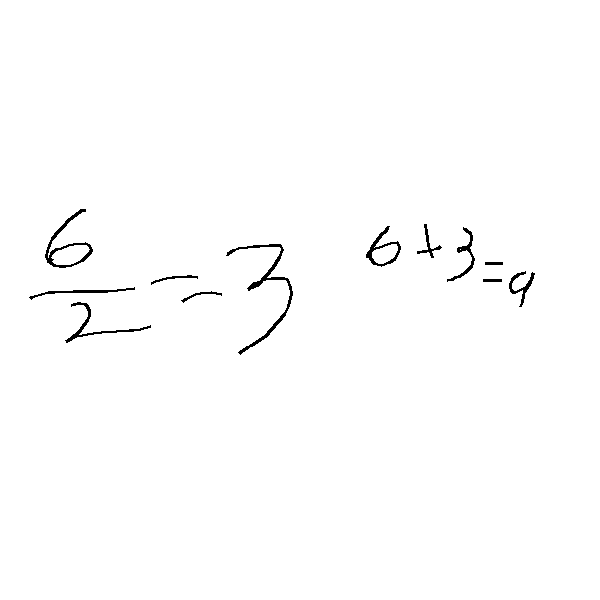 6/2 = 3
6+3=9